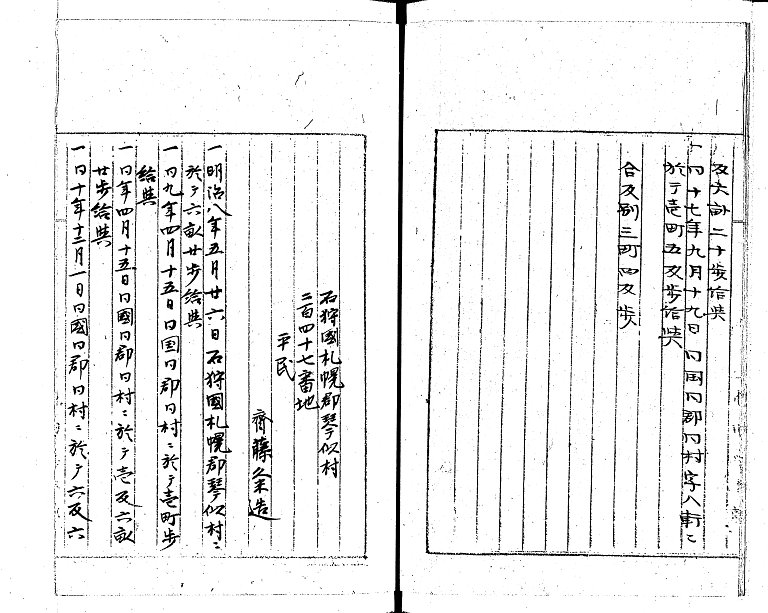 反六畝二十歩給与
一同十七年九月十九日同国同郡同村字八軒ニ
於テ壱町五反歩給与
合反別三町四反歩
石狩國札幌郡琴似村
二百四十七番地
平民
齊藤条造
一明治八年五月廿六日石狩國札幌郡琴似村ニ
於テ六畝廿歩給與
一同九年四月十五日同国同郡同村ニ於テ壱町歩
給與
一同年四月十五日同國同郡同村ニ於テ壱反六畝
廿歩給與
一同十年十二月一日同國同郡同村ニ於テ六反六